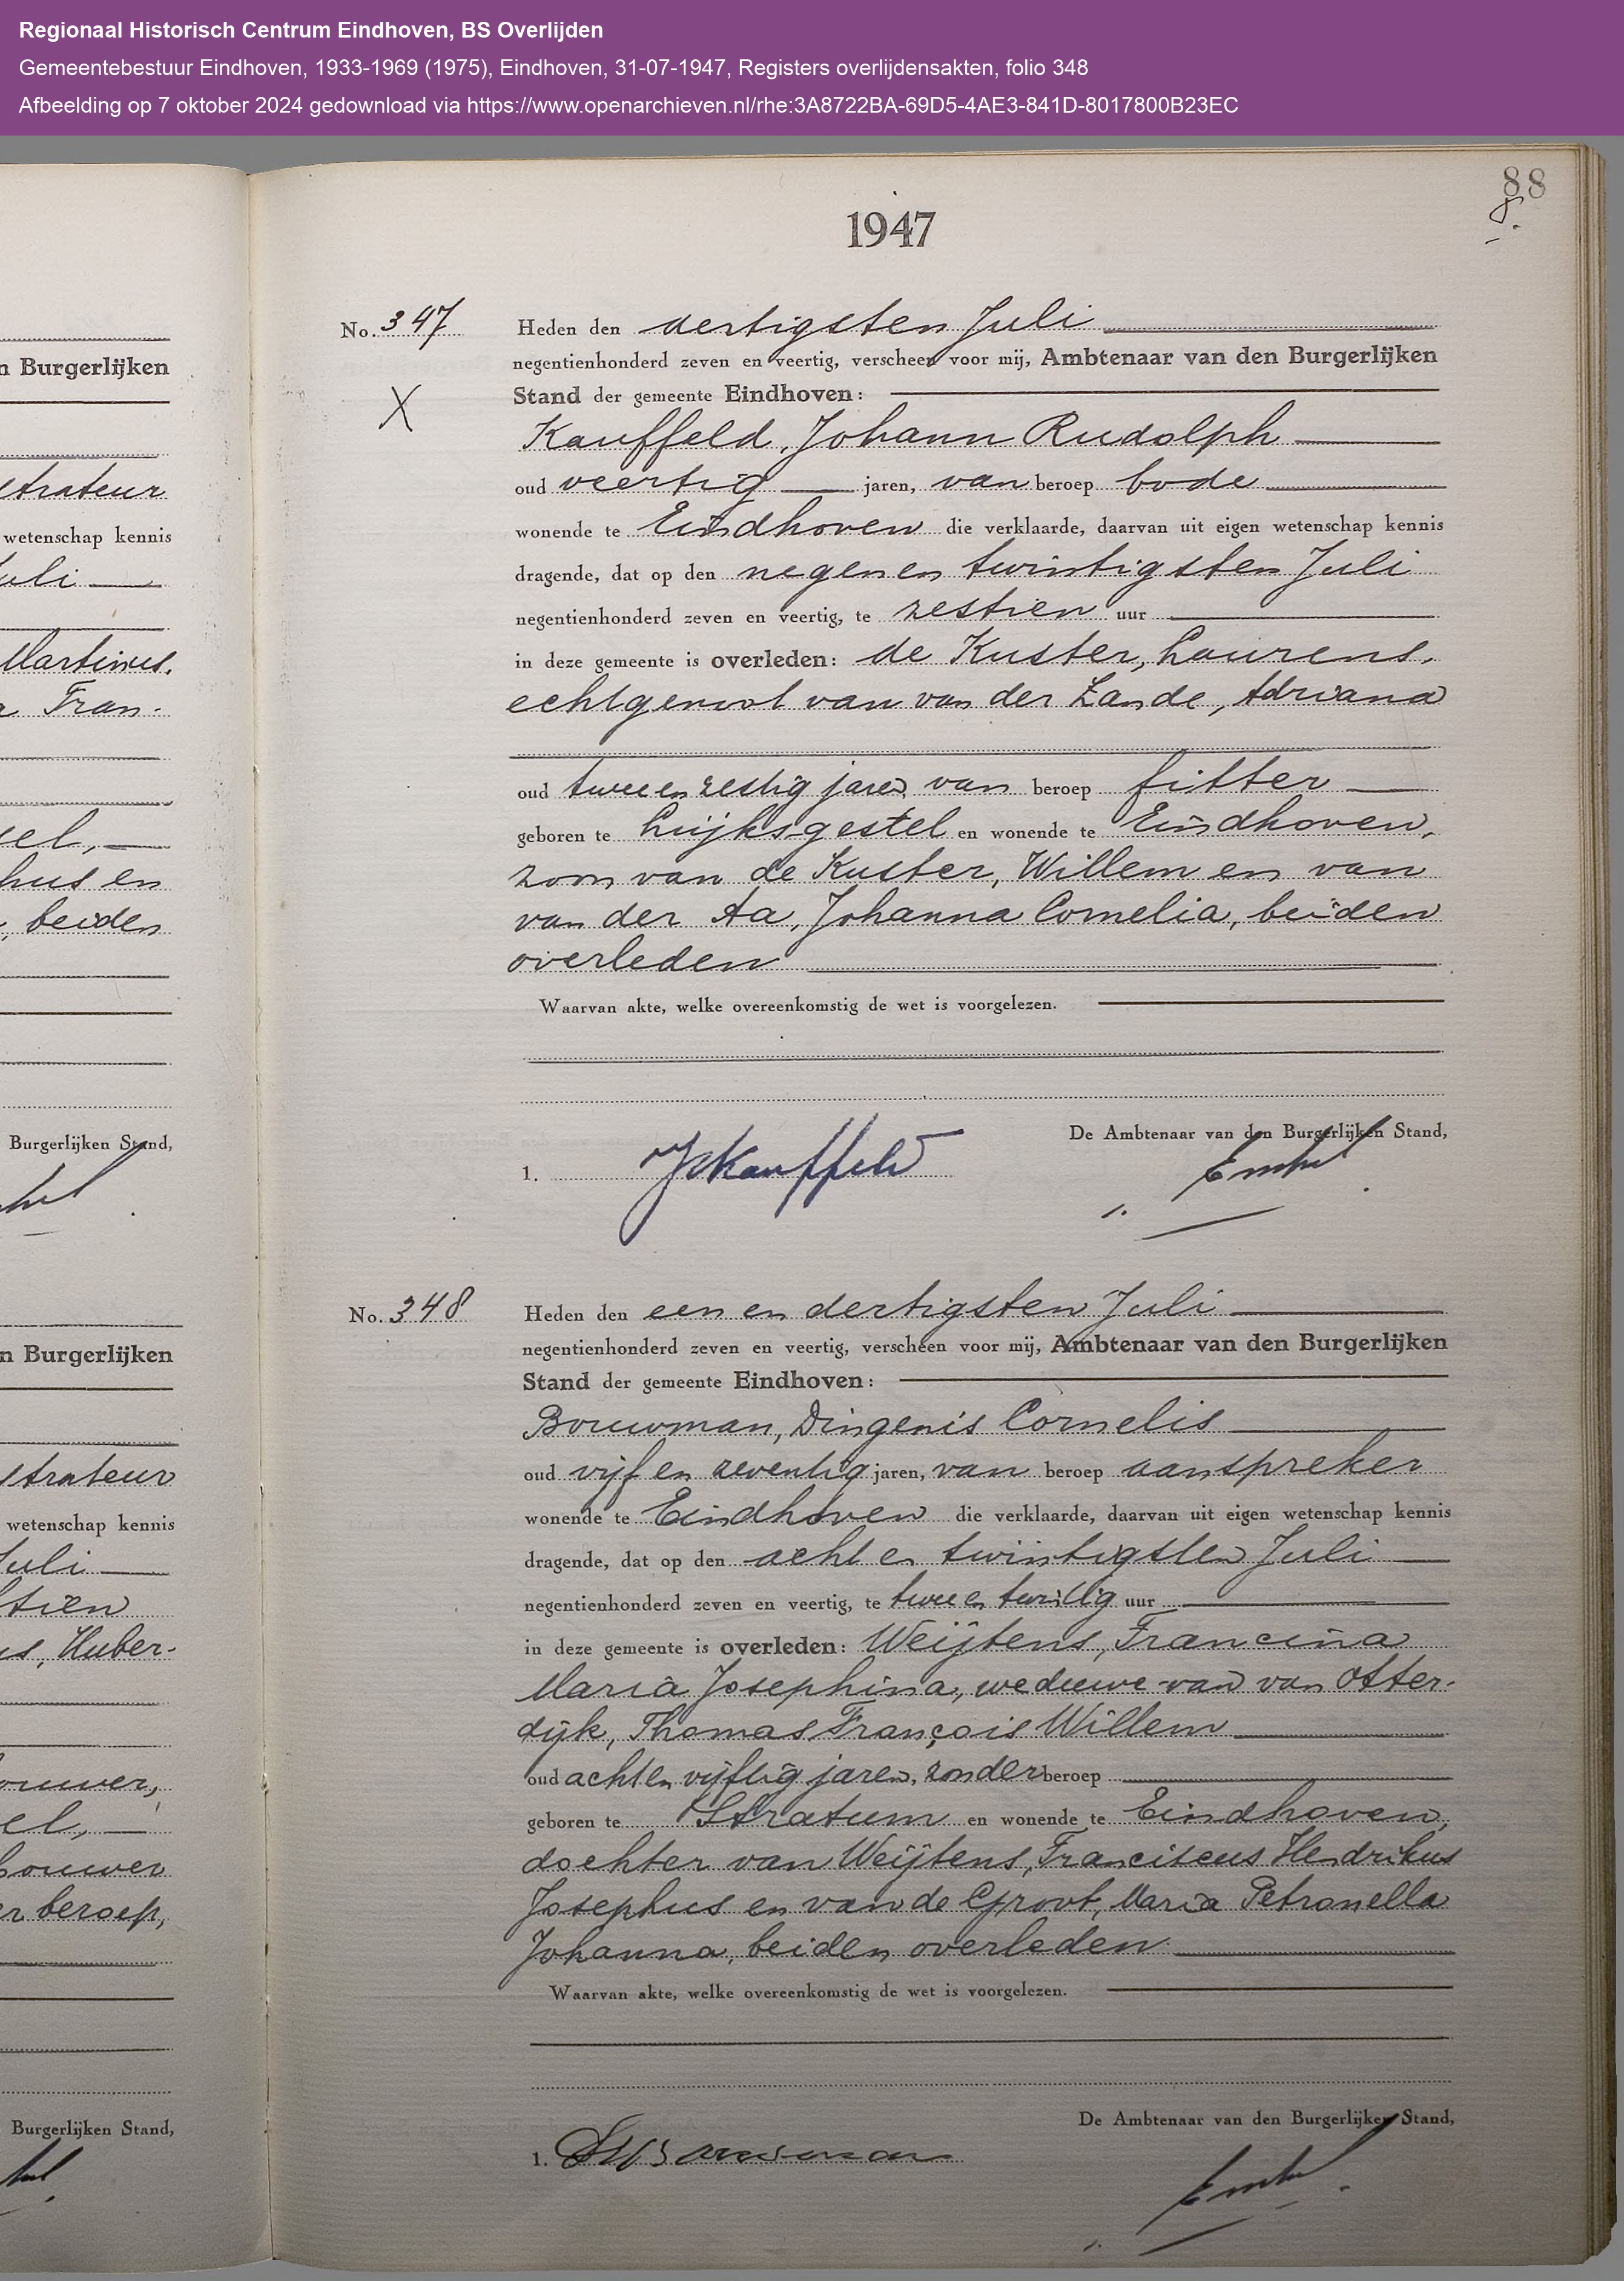 Regionaal Historisch Centrum Eindhoven, BS Overlijden
Gemeentebestuur Eindhoven, 1933-1969 (1975), Eindhoven, 31-07-1947, Registers overlijdensakten, folio 348
Afbeelding op 7 oktober 2024 gedownload via https://www.openarchieven.nl/rhe:3A8722BA-69D5-4AE3-841D-8017800B23EC
n Burgerlijken
strateur
wetenschap kennis
uli
Martinus.
a Fran-
sel,
hus en
, beiden
Burgerlijken Stand,
n Burgerlijken
strateur
wetenschap kennis
Juli
tien
us, Huber-
ouwer,
el,
bouwer
er beroep,
Burgerlijken Stand,
88
1947
No. 347 Heden den dertigsten Juli
negentienhonderd zeven en veertig, verscheen voor mij, Ambtenaar van den Burgerlijken
X Stand der gemeente Eindhoven:
Kauffeld, Johann Rudolph
oud veertig jaren, van beroep bode
wonende te Eindhoven die verklaarde, daarvan uit eigen wetenschap kennis
dragende, dat op den negen en twintigsten Juli
negentienhonderd zeven en veertig, te zestien uur
in deze gemeente is overleden: de Kuster, Laurens,
echtgenoot van van der Zande, Adriana
oud twee en zestig jaren, van beroep fitter
geboren te Luijksgestel en wonende te Eindhoven,
zoon van de Kuster, Willem en van
van der Aa, Johanna Cornelia, beiden
overleden
Waarvan akte, welke overeenkomstig de wet is voorgelezen.
De Ambtenaar van den Burgerlijken Stand,
1. JRKauffeld
No. 348 Heden den een en dertigsten Juli
negentienhonderd zeven en veertig, verscheen voor mij, Ambtenaar van den Burgerlijken
Stand der gemeente Eindhoven:
Bouwman, Dingenis Cornelis
oud vijf en zeventig jaren, van beroep aanspreker
wonende te Eindhoven die verklaarde, daarvan uit eigen wetenschap kennis
dragende, dat op den acht en twintigsten Juli
negentienhonderd zeven en veertig, te twee en twintig uur
in deze gemeente is overleden: Weijtens, Francina
Maria Josephina, weduwe van van Otter-
dijk, Thomas François Willem
oud acht en vijftig jaren, zonder beroep
geboren te Stratum en wonende te Eindhoven,
dochter van Weijtens, Franciscus Hendrikus
Josephus en van de Groot, Maria Petronella
Johanna, beiden overleden
Waarvan akte, welke overeenkomstig de wet is voorgelezen.
De Ambtenaar van den Burgerlijken Stand,
1. Bouwman